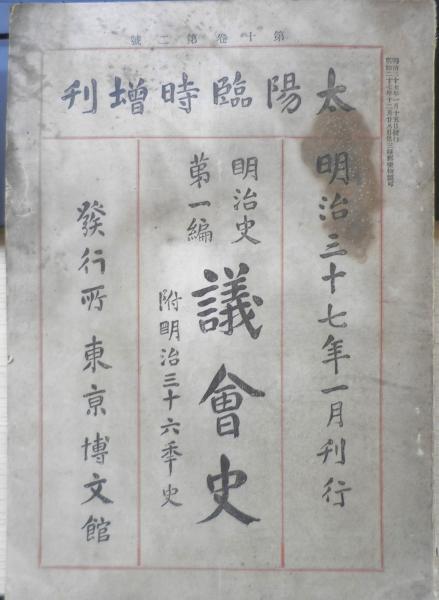 第十卷第二號
太陽臨時增刊
明治三十七年一月刊行
明治史
第一編
議會史
附明治三十六年史
發行所東京博文館